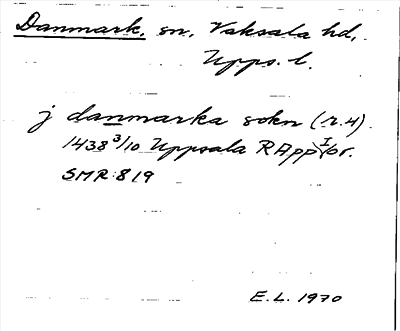 Danmark, sn, Vaksala hd,
Upps. l.
j danmarka sokn (r.4).
1438 3/10 Uppsala RApp I pr.
SMR:819
E.L. 1970